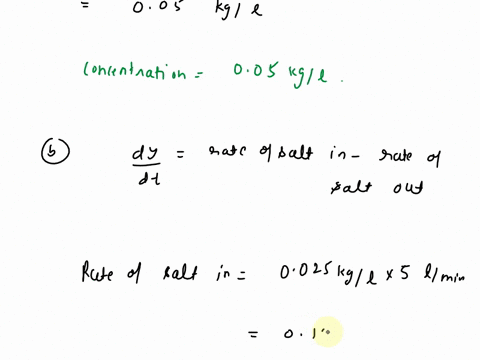 = 0.05 kg/l
Concentration = 0.05 kg/l.
(b) dy/dt = rate of salt in - rate of
salt out
Rate of salt in = 0.025 kg/l × 5 l/min
= 0.1